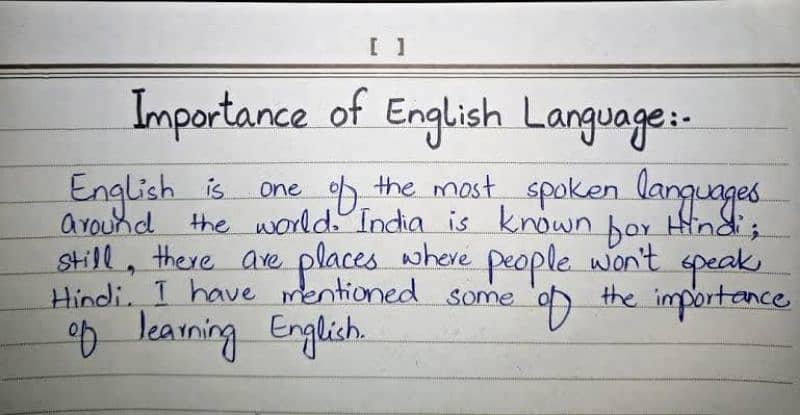 [ ]
Importance of English Language:-
English is one of the most spoken languages
around the world. India is known for Hindi;
still, there are places where people won't speak
Hindi. I have mentioned some of the importance
of learning English.